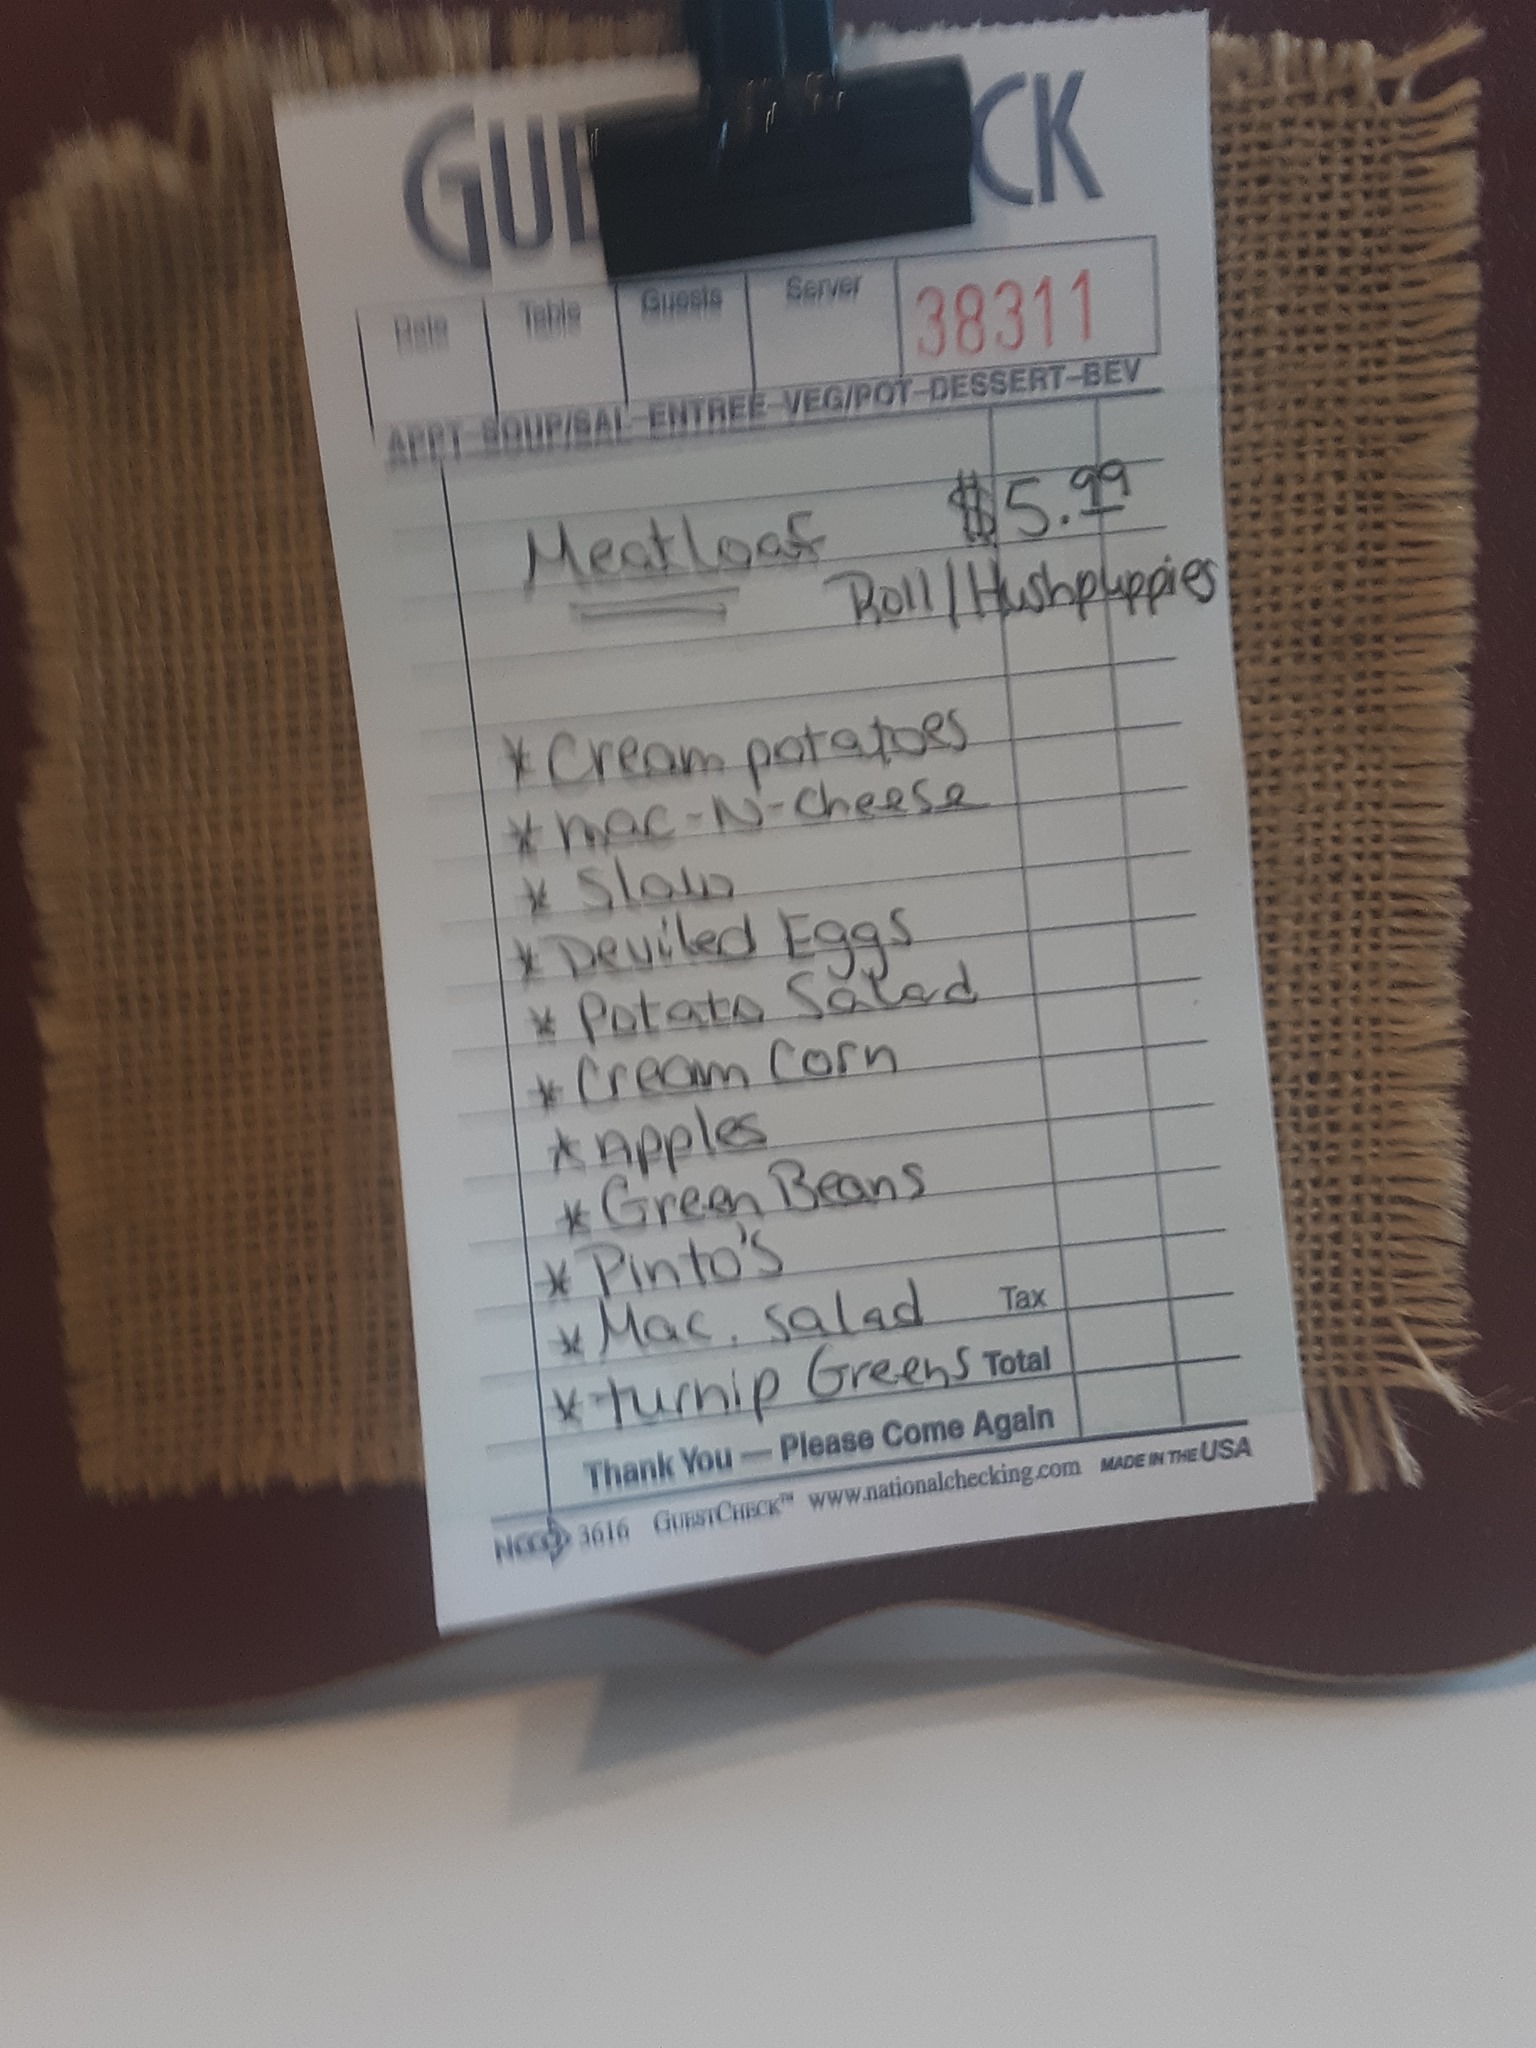 GUE CK
Date Table Guests Server 38311
APPT-SOUP/SAL-ENTREE-VEG/POT-DESSERT-BEV
Meatloaf $5.99
Roll/Hushpuppies
* Cream potatoes
* mac-N-cheese
* Slaw
* Deviled Eggs
* Potato Salad
* Cream Corn
* Apples
* Green Beans
* Pinto's
* Mac. salad Tax
* turnip Greens Total
Thank You — Please Come Again
NCCO 3616 GUESTCHECK™ www.nationalchecking.com MADE IN THE USA